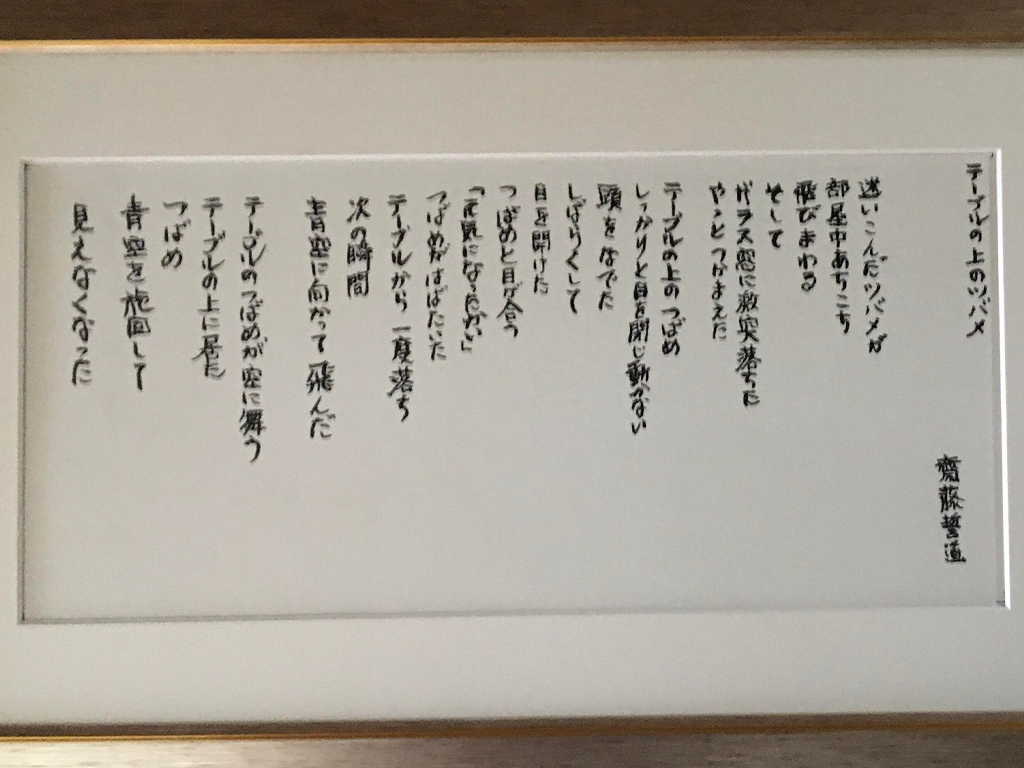 テーブルの上のツバメ
齋藤誓道
迷いこんだツバメが
部屋中あちこち
飛びまわる
そして
ガラス窓に激突落ちた
やっとつかまえた
テーブルの上のつばめ
しっかりと目を閉じ動かない
頭をなでた
しばらくして
目を開けた
つばめと目が合う
「元気になったかい」
つばめがはばたいた
テーブルから一度落ち
次の瞬間
青空に向かって飛んだ
テーブルのつばめが空に舞う
テーブルの上に居た
つばめ
青空を旋回して
見えなくなった